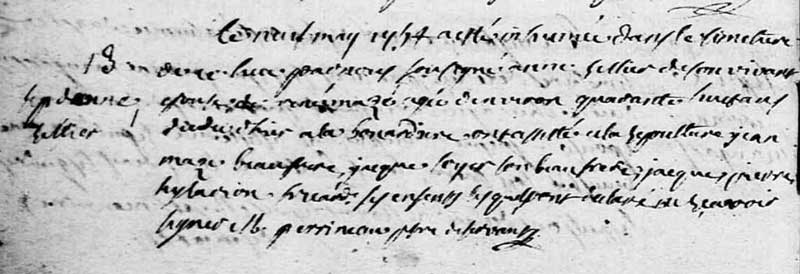 Le neuf may 1754 a esté inhumée dans le simetiere
13 de ce lieu par nous soussigné anne Tellier de son vivant
sep d'anne epouse de mazé agée d'environ quarante huit ans
Tellier decedée d'hier a la ont assisté a la sepulture jean
mazé beau frere, jacque son beau frere, jacques, pierre
hylarion ses enfents lesquels ont declaré ne sçavoir
signer perrineau ptre desservant